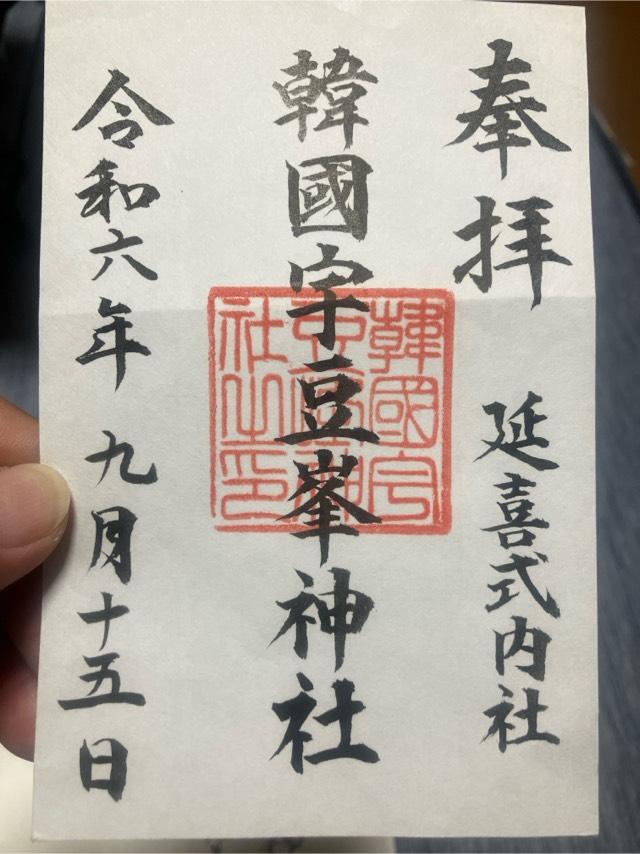 奉拝
延喜式内社
韓國宇豆峯神社
韓國宇豆峯神社之印
令和六年九月十五日